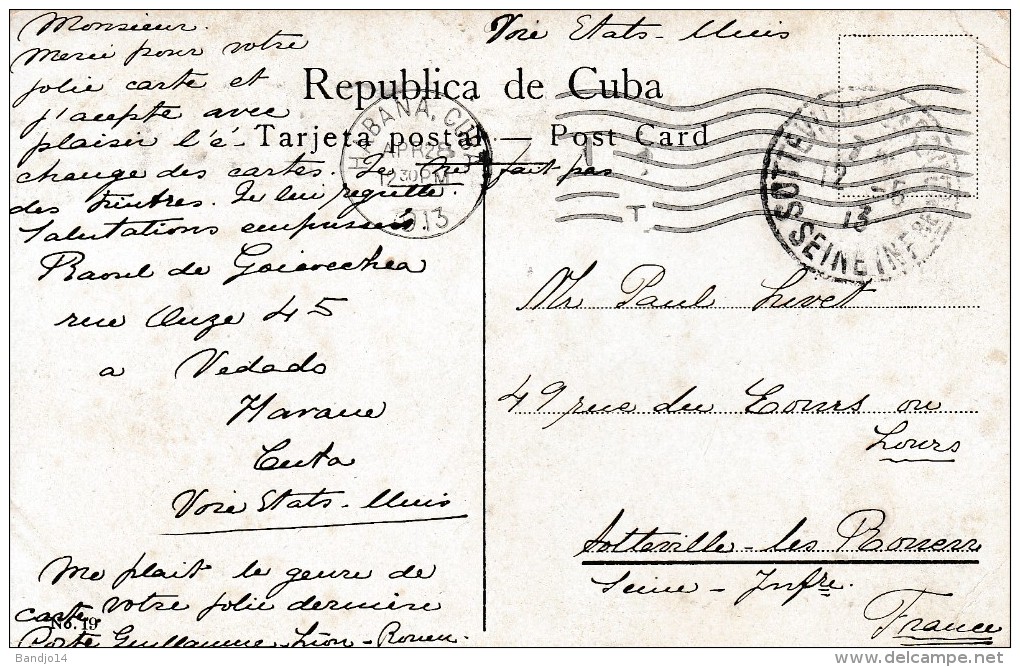 Monsieur.
Merci pour votre
jolie carte et
j'acepte avec
plaisir l'é-
change des cartes. Je ne fait pas
des timbres. Je lui regrette.
Salutations empressés
Raoul de Goicoechea
rue Onze 45
a Vedado
Havane
Cuba
Voie Etats-Unis
Me plait le genre de
carte votre jolie dernière
Porte Guillaume Lion-Rouen.
No. 19
Voie Etats-Unis
Republica de Cuba
Tarjeta postal — Post Card
HABANA, CUBA
APR 28
12 30 PM
1913
T
SOTTEVILLE
12
5
13
SEINE INFRE
Mr Paul Livet
49 rue du Cours ou
Lours
Sotteville-les Rouen
Seine-Infre.
France
Bandjo14
http://www.delcampe.net